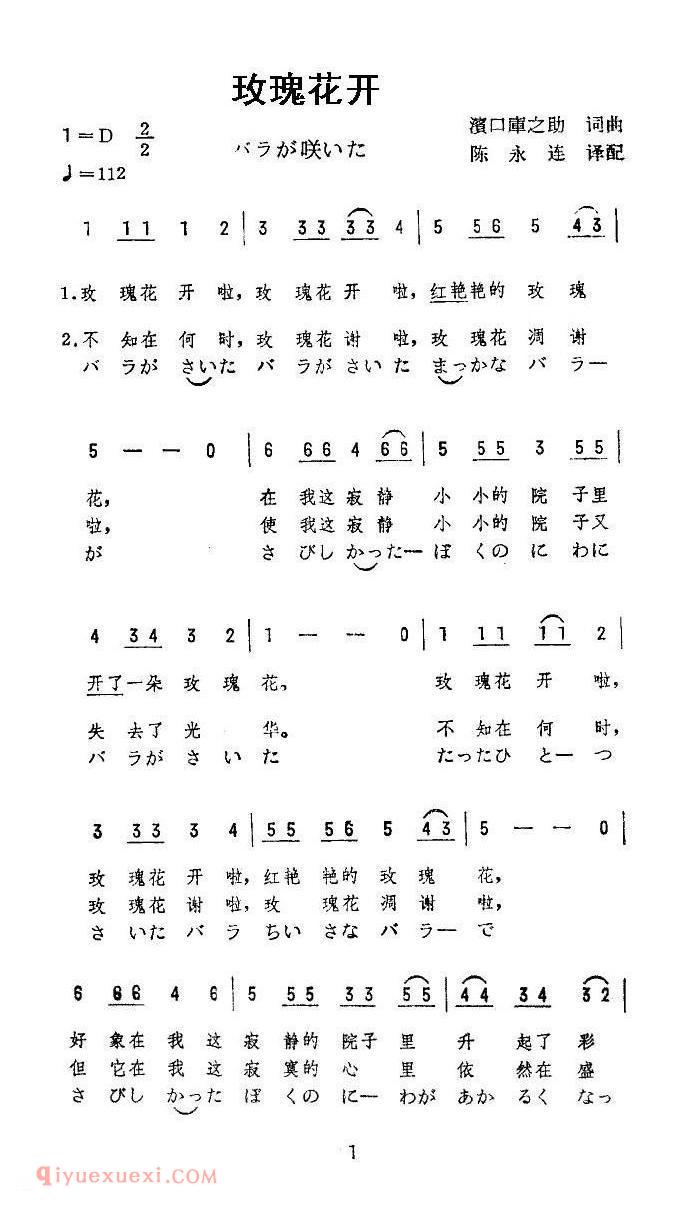 玫瑰花开
1=D 2/2
バラが咲いた
濱口庫之助 词曲
♩=112
陈永连 译配
1 1 1 1 2 | 3 3 3 3 3 4 | 5 5 6 5 4 3 |
1.玫 瑰花 开 啦,玫 瑰花 开 啦,红艳艳的 玫 瑰
2.不 知在 何 时,玫 瑰花 谢 啦,玫 瑰花 凋 谢
バ ラが さいた バ ラが さいた まっかな バ ラー
5 — — 0 | 6 6 6 4 6 6 | 5 5 5 3 5 5 |
花, 在 我这 寂 静 小 小的 院 子里
啦, 使 我这 寂 静 小 小的 院 子又
が さ びし かったー ぼ くの に わに
4 3 4 3 2 | 1 — — 0 | 1 1 1 1 1 2 |
开了一朵 玫 瑰 花, 玫 瑰花 开 啦,
失 去了 光 华。 不 知在 何 时,
バ ラが さ い た たったひ とー つ
3 3 3 3 4 | 5 5 5 6 5 4 3 | 5 — — 0 |
玫 瑰花 开 啦,红艳 艳的 玫 瑰 花,
玫 瑰花 谢 啦,玫 瑰花 凋 谢 啦,
さ いた バ ラ ちい さな バ ラー で
6 6 6 4 6 | 5 5 5 3 3 5 5 | 4 4 3 4 3 2 |
好 象在 我 这 寂 静的 院子 里 升 起了 彩
但 它在 我 这 寂 寞的 心 里 依 然在 盛
さ びし かった ぼ くの にー わが あか るく なっ
1
qiyuexuexi.com